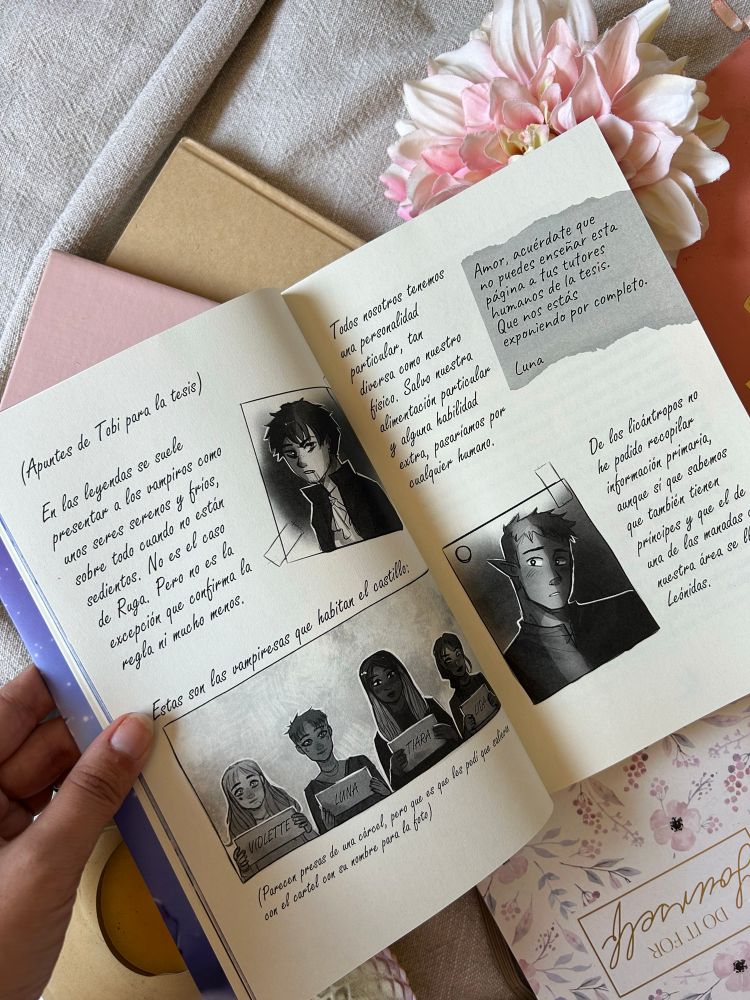 (Apuntes de Tobi para la tesis)
En las leyendas se suele
presentar a los vampiros como
unos seres serenos y fríos,
sobre todo cuando no están
sedientos. No es el caso
de Ruga. Pero no es la
excepción que confirma la
regla ni mucho menos.
Estas son las vampiresas que habitan el castillo:
VIOLETTE
LUNA
TIARA
(Parecen presas de una cárcel, pero que es que les pedí que salieran
con el cartel con su nombre para la foto)
Todos nosotros tenemos
una personalidad
particular, tan
diversa como nuestro
físico. Salvo nuestra
alimentación particular
y alguna habilidad
extra, pasaríamos por
cualquier humano.
Amor, acuérdate que
no puedes enseñar esta
página a tus tutores
humanos de la tesis.
Que nos estás
exponiendo por completo.
Luna
De los licántropos no
he podido recopilar
información primaria,
aunque sí que sabemos
que también tienen
príncipes y que el de
una de las manadas
nuestra área se
Leónidas.
DO IT FOR
Yourself